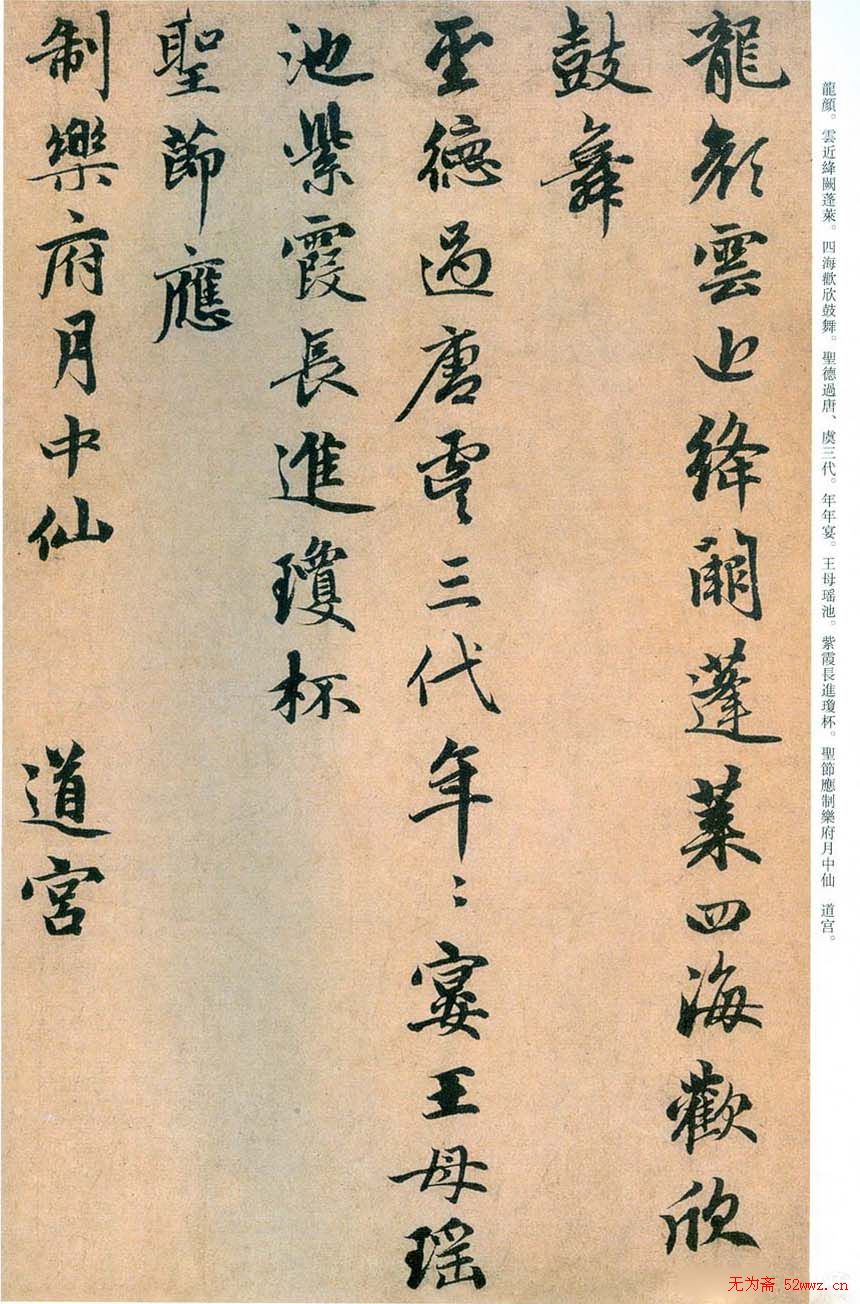 龍顔。雲近絳闕蓬萊。四海歡欣鼓舞。聖德過唐、虞三代。年年宴。王母瑶池。紫霞長進瓊杯。聖節應制樂府月中仙　道宫。
龍顔雲近絳闕蓬萊四海歡欣
鼓舞
聖德過唐虞三代年〻宴王母瑶
池紫霞長進瓊杯
聖節應
制樂府月中仙　道宫
无为斋.52wwz.cn